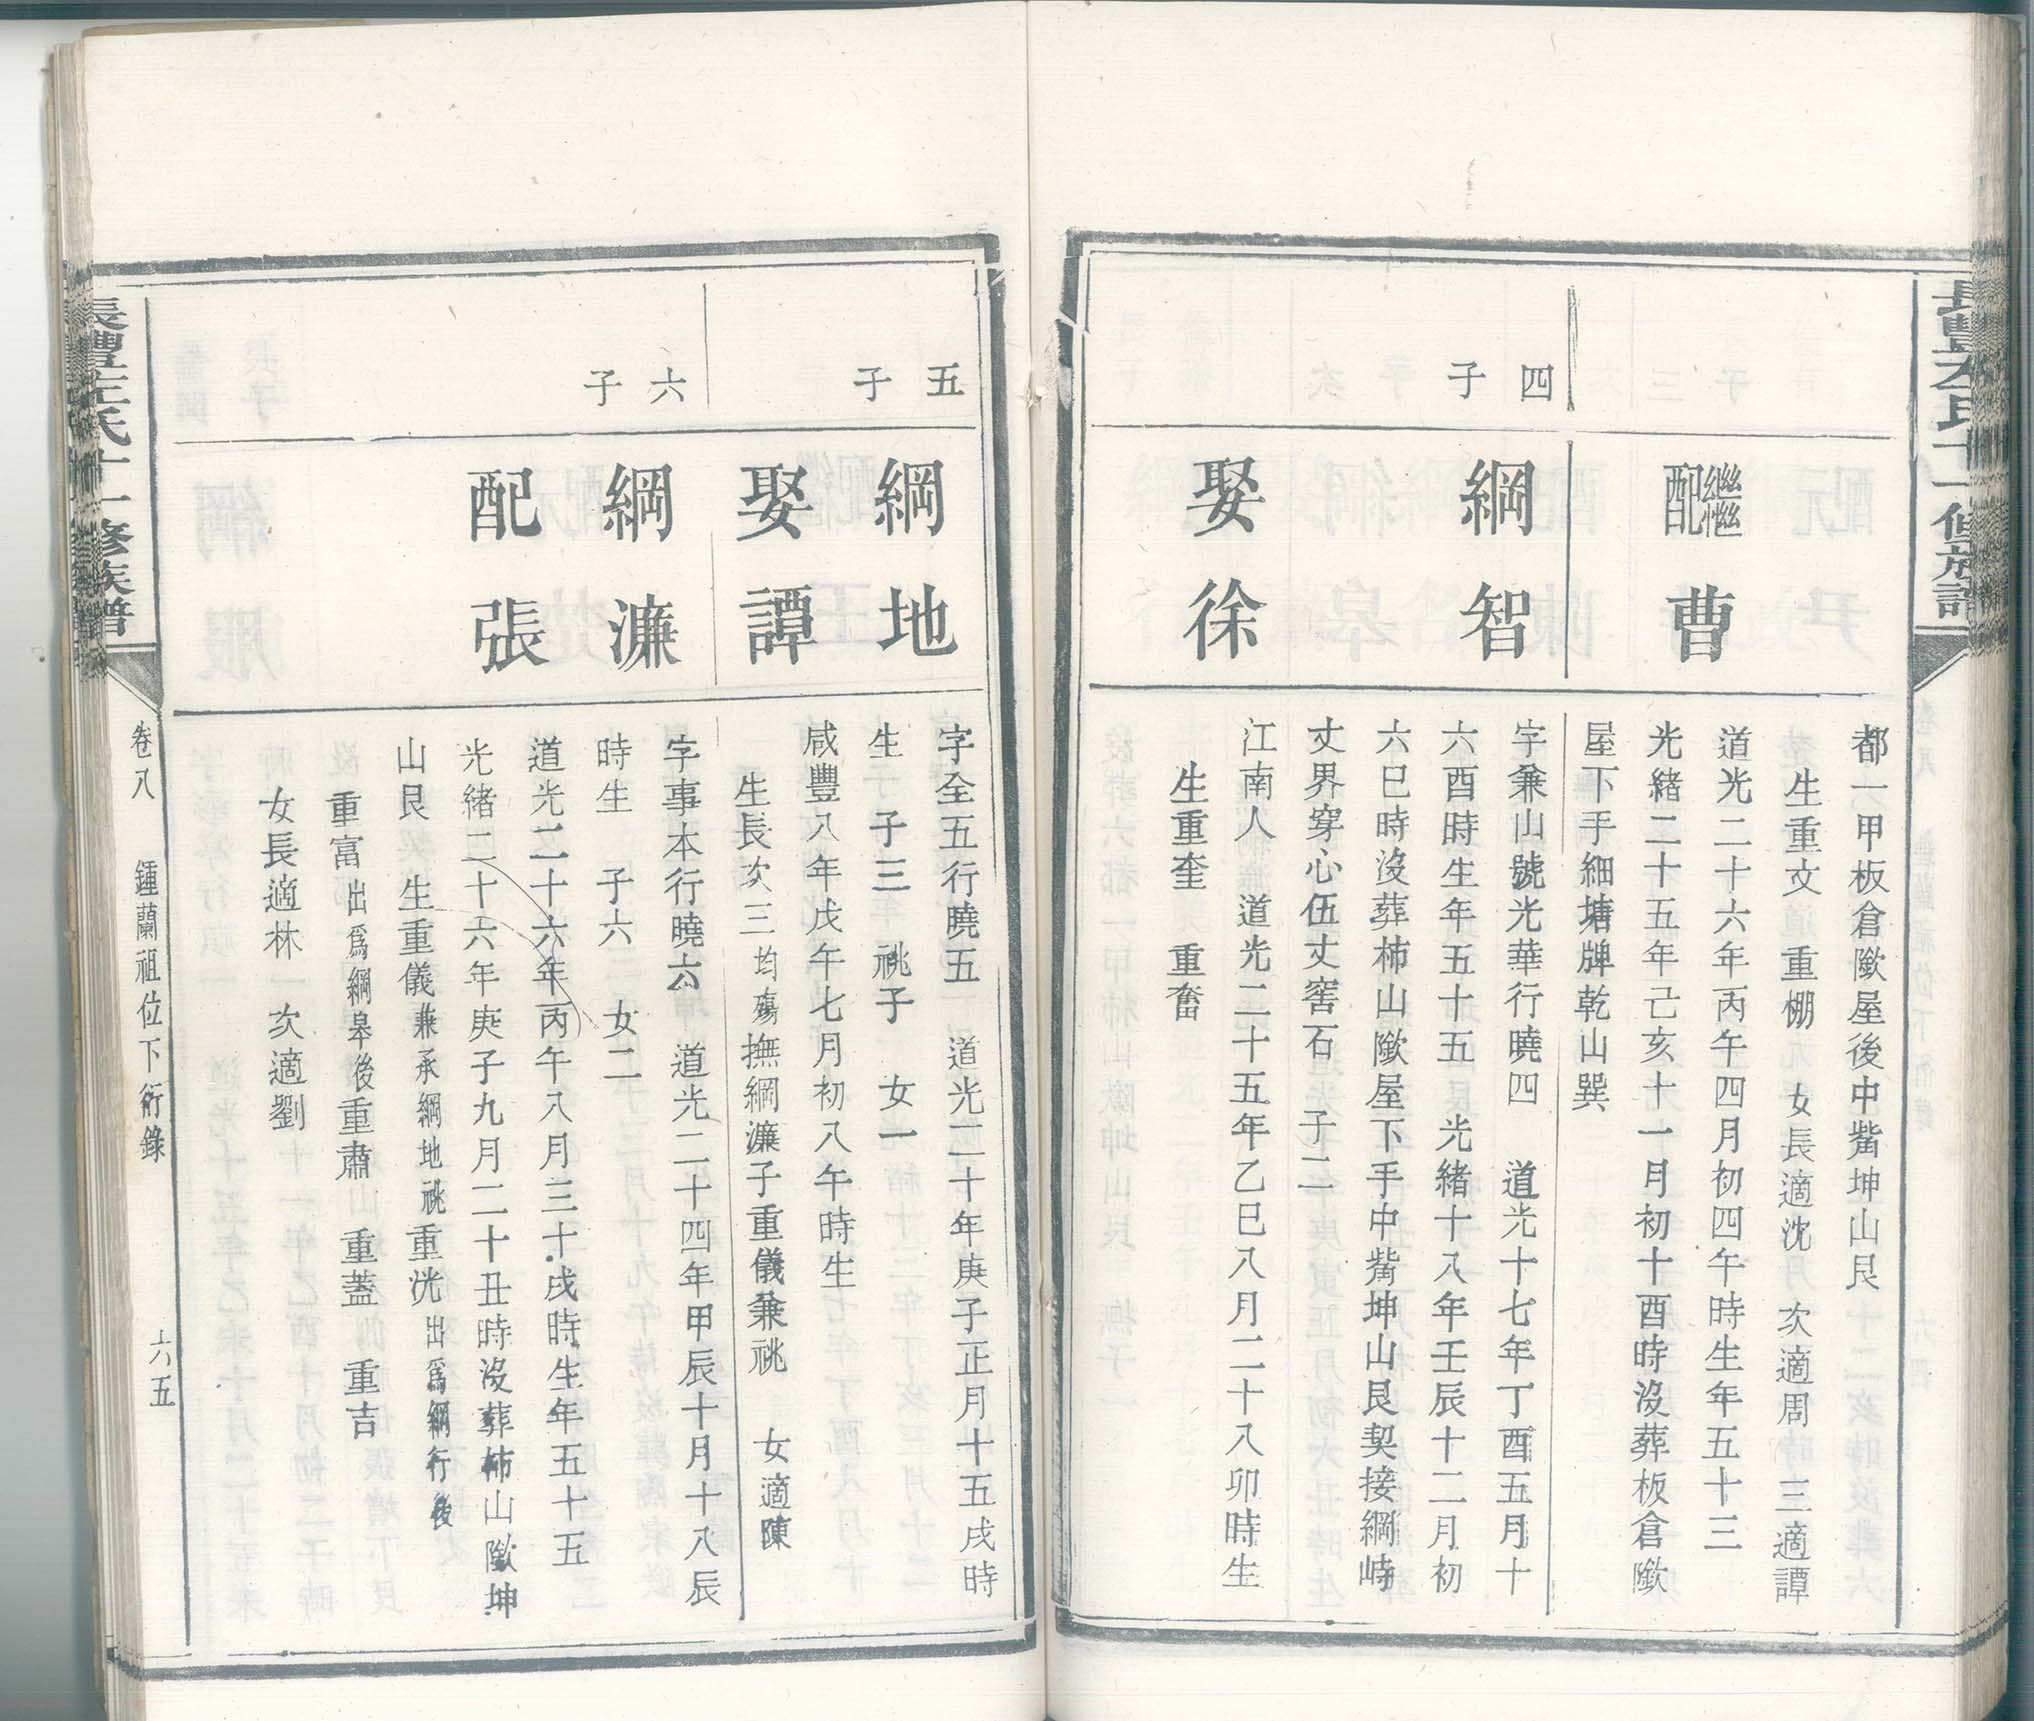 都一甲板倉歞屋後中觜坤山艮
繼配
曹
生重文　重棚　女長適沈　次適周　三適譚
道光二十六年丙午四月初四午時生年五十三
光緒二十五年己亥十一月初十酉時沒葬板倉歞
屋下手細塘牌乾山巽
四子
綱智
字兼山號光華行曉四　道光十七年丁酉五月十
六酉時生年五十五　光緒十八年壬辰十二月初
六巳時沒葬柿山歞屋下手中觜坤山艮契接綱峙
丈界穿心伍丈窖石　子二
娶徐
江南人　道光二十五年乙巳八月二十八卯時生
生重奎　重奮
五子
綱地
字全五行曉五　道光二十年庚子正月十五戌時
生　子三　祧子　女一
娶譚
咸豐八年戊午七月初八午時生
生長次三均殤撫綱濂子重儀兼祧　女適陳
六子
綱濂
字事本行曉六　道光二十四年甲辰十月十八辰
時生　子六　女二
配張
道光二十六年丙午八月三十戌時生年五十五
光緒二十六年庚子九月二十丑時沒葬柿山歞坤
山艮　生重儀兼承綱地祧重洸出爲綱行後
重富出爲綱皋後重肅　重蓋　重吉
女長適林　次適劉
長豐左氏十一修族譜
卷八　鍾蘭祖位下衍錄　六五